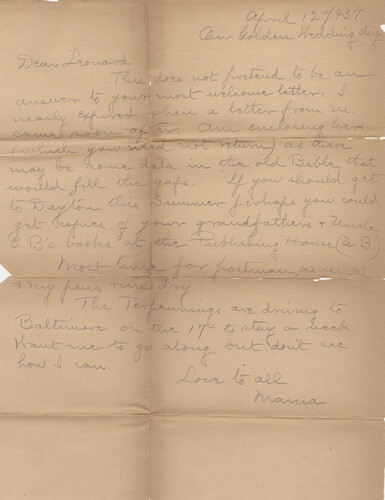 April 12 1937
Our Golden Wedding day
Dear Leonard
This does not pretend to be an
answer to your most welcome letter. I
nearly expired when a letter from M.
came soon after. Am enclosing here
(which you need not return) as there
may be some data in the old Bible that
would fill the gaps. If you should get
to Dayton this Summer perhaps you could
get copies of your grandfathers + Uncle
E.B's books at the Publishing House (U.B)
Most time for postman, as usual
+ my pens run dry
The Terpennings are driving to
Baltimore on the 17 to stay a week.
Want me to go along, but don't see
how I can.
Love to all
Mama